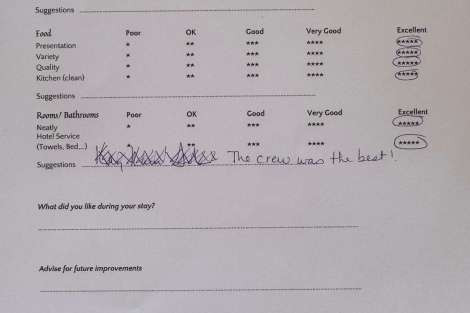 Suggestions
Food Poor OK Good Very Good Excellent
Presentation * ** *** **** *****
Variety * ** *** **** *****
Quality * ** *** **** *****
Kitchen (clean) * ** *** **** *****
Suggestions
Rooms/ Bathrooms Poor OK Good Very Good Excellent
Neatly * ** *** **** *****
Hotel Service
(Towels, Bed...) * ** *** **** *****
Suggestions The crew was the best!
What did you like during your stay?
Advise for future improvements